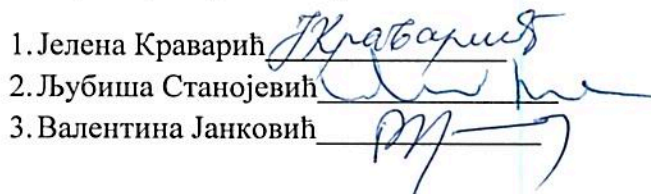 1. Јелена Краварић ЈКраварић
2. Љубиша Станојевић
3. Валентина Јанковић